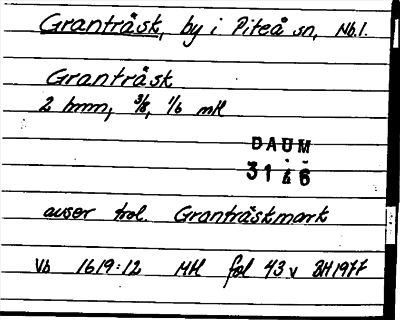 Granträsk, by i Piteå sn, Nb.l.
Granträsk
2 hmn, 3/8, 1/6 mtl
DAUM
3146
avser trol. Granträskmark
Vb 1619:12 Mtl fol 43 v BH 1977